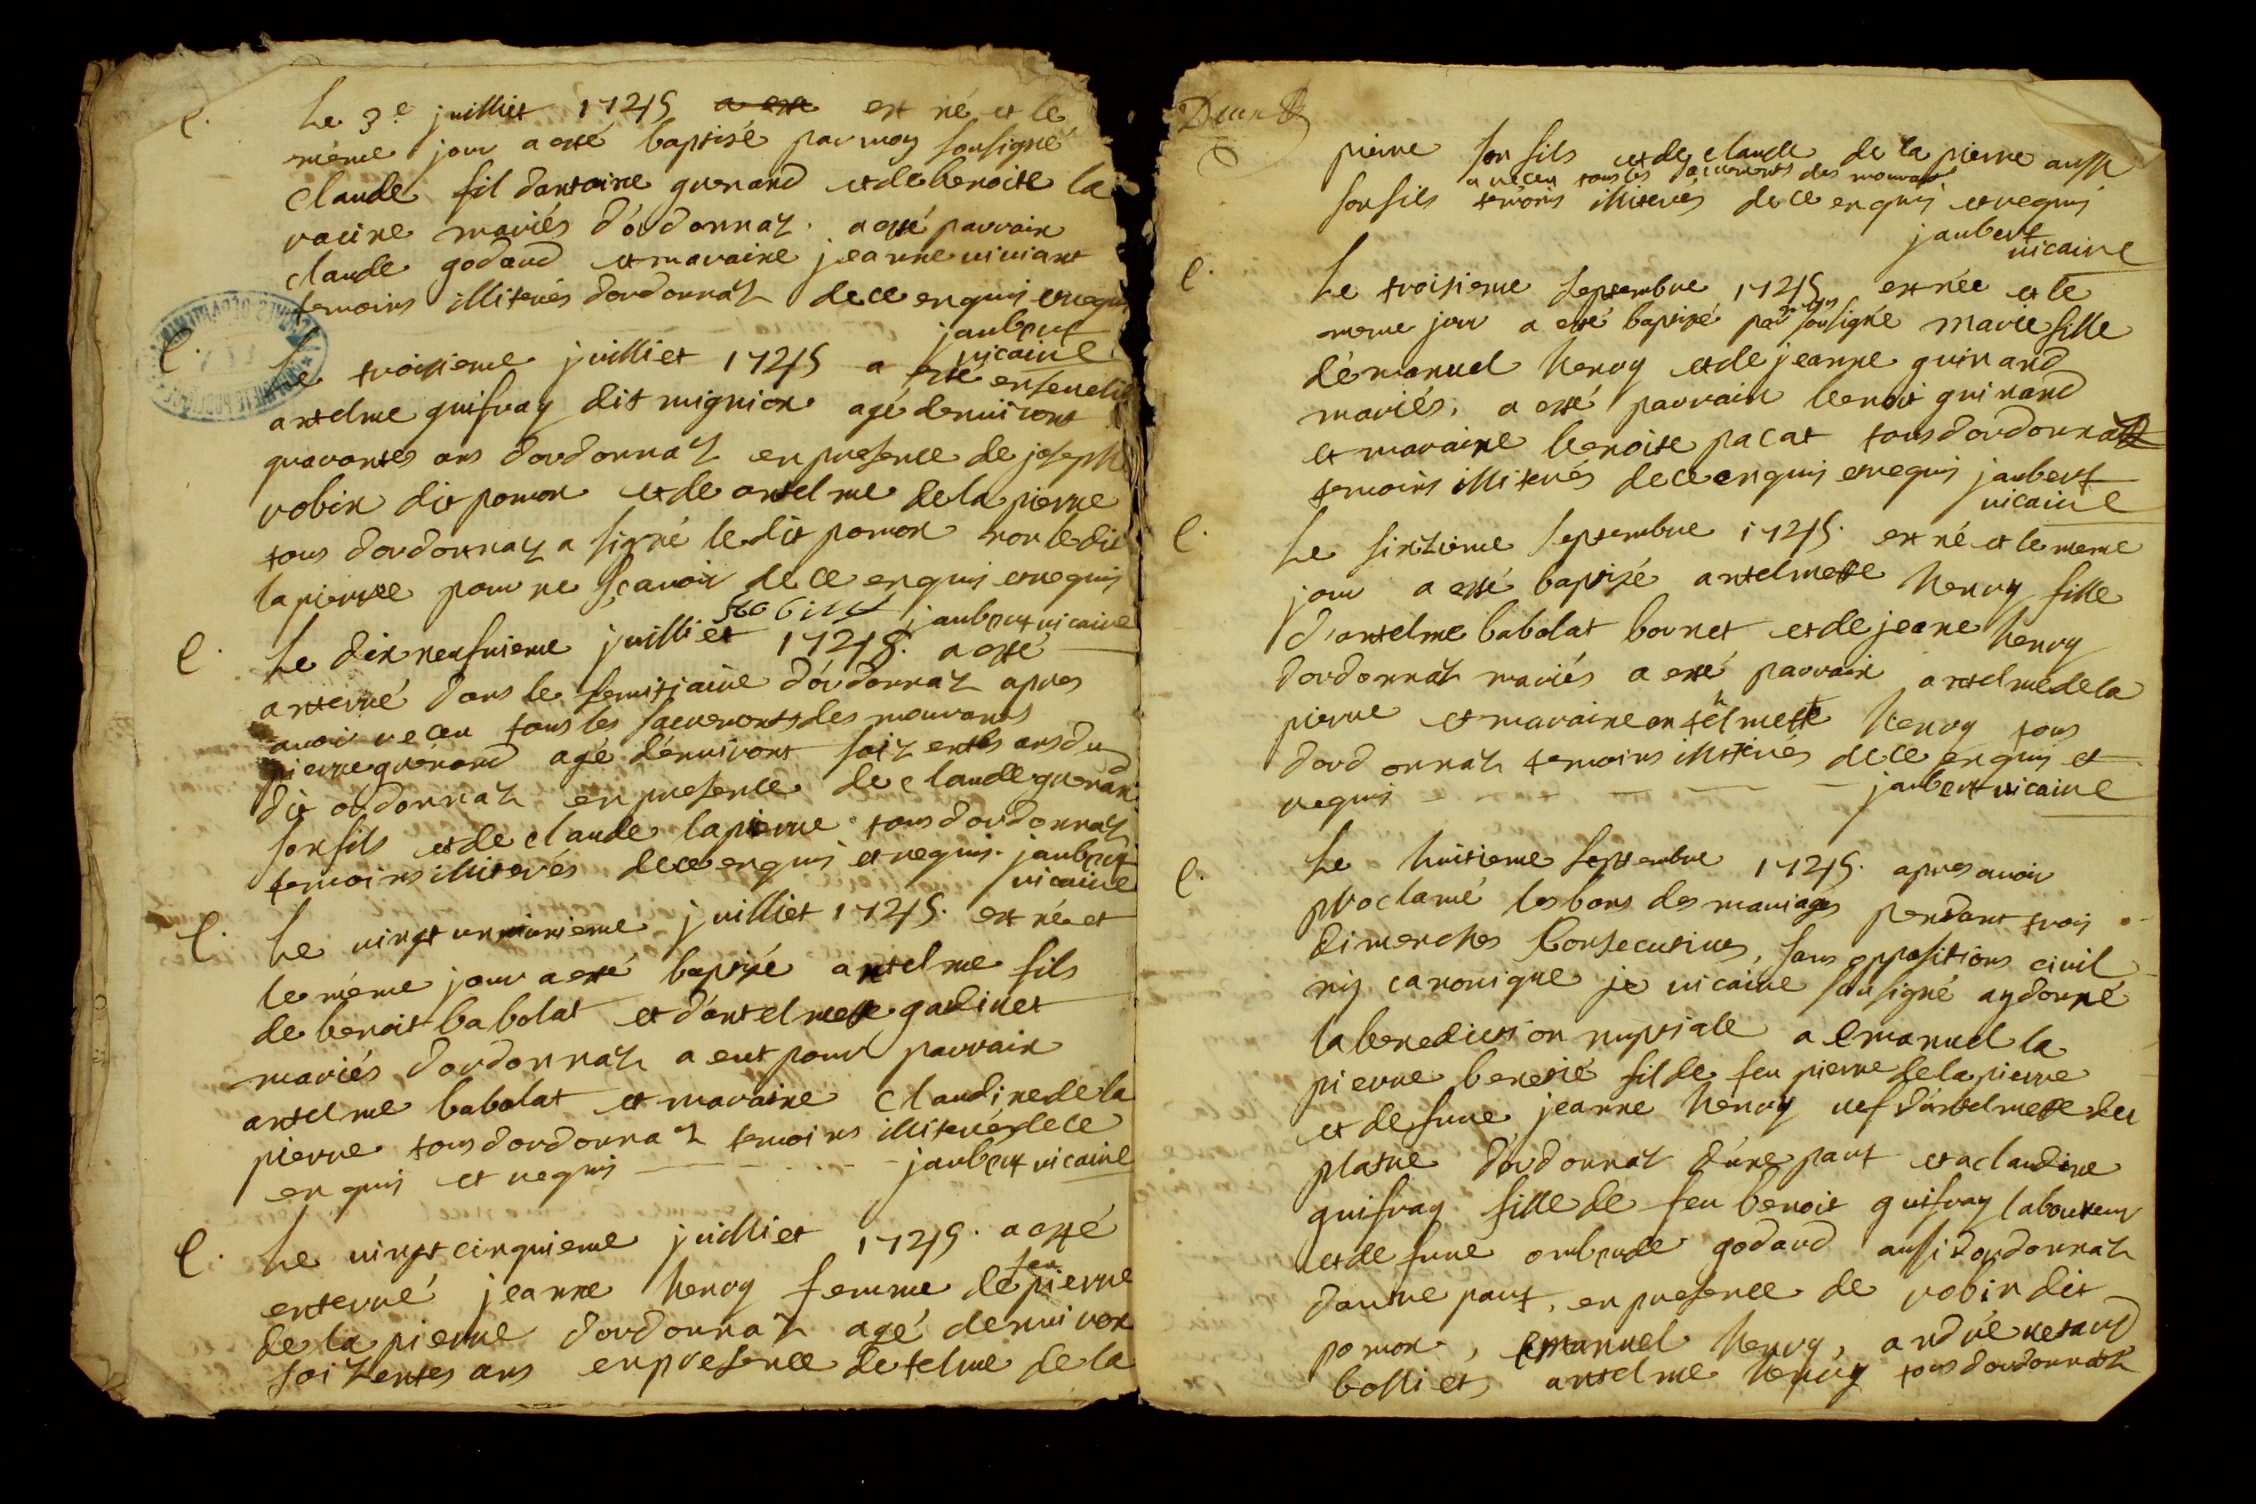 Le 3e juilliet 1745 a este est né et le
même jour a esté baptisé par moy sousigné
Claude fil dantoine guenand et de benoite la
racine mariés d'ordonnaz. a esté parrain
claude godand et maraine jeanne viviant
temoins illiterés dordonnaz de ce enquis et requis
jaubert
vicaire
Le troisieme juilliet 1745 a esté enseveli
antelme guifray dit mignion agé denviront
quarantes ans dordonnaz en presence de joseph
robin dit pomon et de antelme de la pierre
tous dordonnaz a signé le dit pomon non le dit
lapierre pour ne sçavoir de ce enquis et requis
Robin jaubert vicaire
Le dix neufvieme juilliet 1745. a esté
anterré dans le semitiaire d'ordonnaz apres
avoir receu tous les sacrements des mourants
pierre guénand agé dénviront soizentes ans du
dit ordonnaz en presence de claude guenan
son fils et de claude lapierre tous dordonnaz
temoins illiterés de ce enquis et requis. jaubert
vicaire
Le vingt unnieme juilliet 1745. est né et
le même jour a esté baptisé antelme fils
de benoit babolat et d'antelmette gadinet
mariés dordonnaz a eut pour parrain
antelme babolat et maraine Claudine de la
pierre tous dordonnaz temoins illiterés de ce
enquis et requis jaubert vicaire
Le vingt cinquieme juilliet 1745. a esté
enterré jeanne henry femme dé feu pierre
de la pierre dordonnaz agé denviron
soizentes ans en presence de telme de la
pierre son fils et de claude de la pierre aussi
a receu tous les sacrements des mourants
son fils temoins illiterés de ce enquis et requis
jaubert
vicaire
Le troisieme septembre 1745 est née et le
meme jour a esté baptisé par moy sousigné marie fille
démanuel henry et de jeanne guinand
mariés, a esté parrain benoit guinand
et maraine benoite pacat tous dordonnaz
temoins illiterés de ce enquis et requis jaubert
vicaire
Le sixzieme septembre 1745. est né et le meme
jour a esté baptisé antelmette henry fille
d'antelme babolat bornet et de jeane henry
dordonnaz mariés a esté parrain antelme de la
pierre et maraine antelmette henry tous
dordonnaz temoins illiterés de ce enquis et
requis jaubert vicaire
Le huitieme septembre 1745. apres avoir
proclamé les bans des mariages pendant trois
dimenches Consecutives, sans oppositions civil
ny canonique je vicaire sousigné ay donné
la benediction nuptiale a emanuel la
pierre benetié fil de feu pierre de la pierre
et defune jeanne henry vef d'antelmette du
platne d'ordonnaz d'une part et a claudine
guifray fille de feu benoit guifray laboureur
et defune godand aussi dordonnaz
dautre part, en presence de robin dit
pomon, emanuel henry, andré netand
bolliet, antelme henry tous dordonnaz